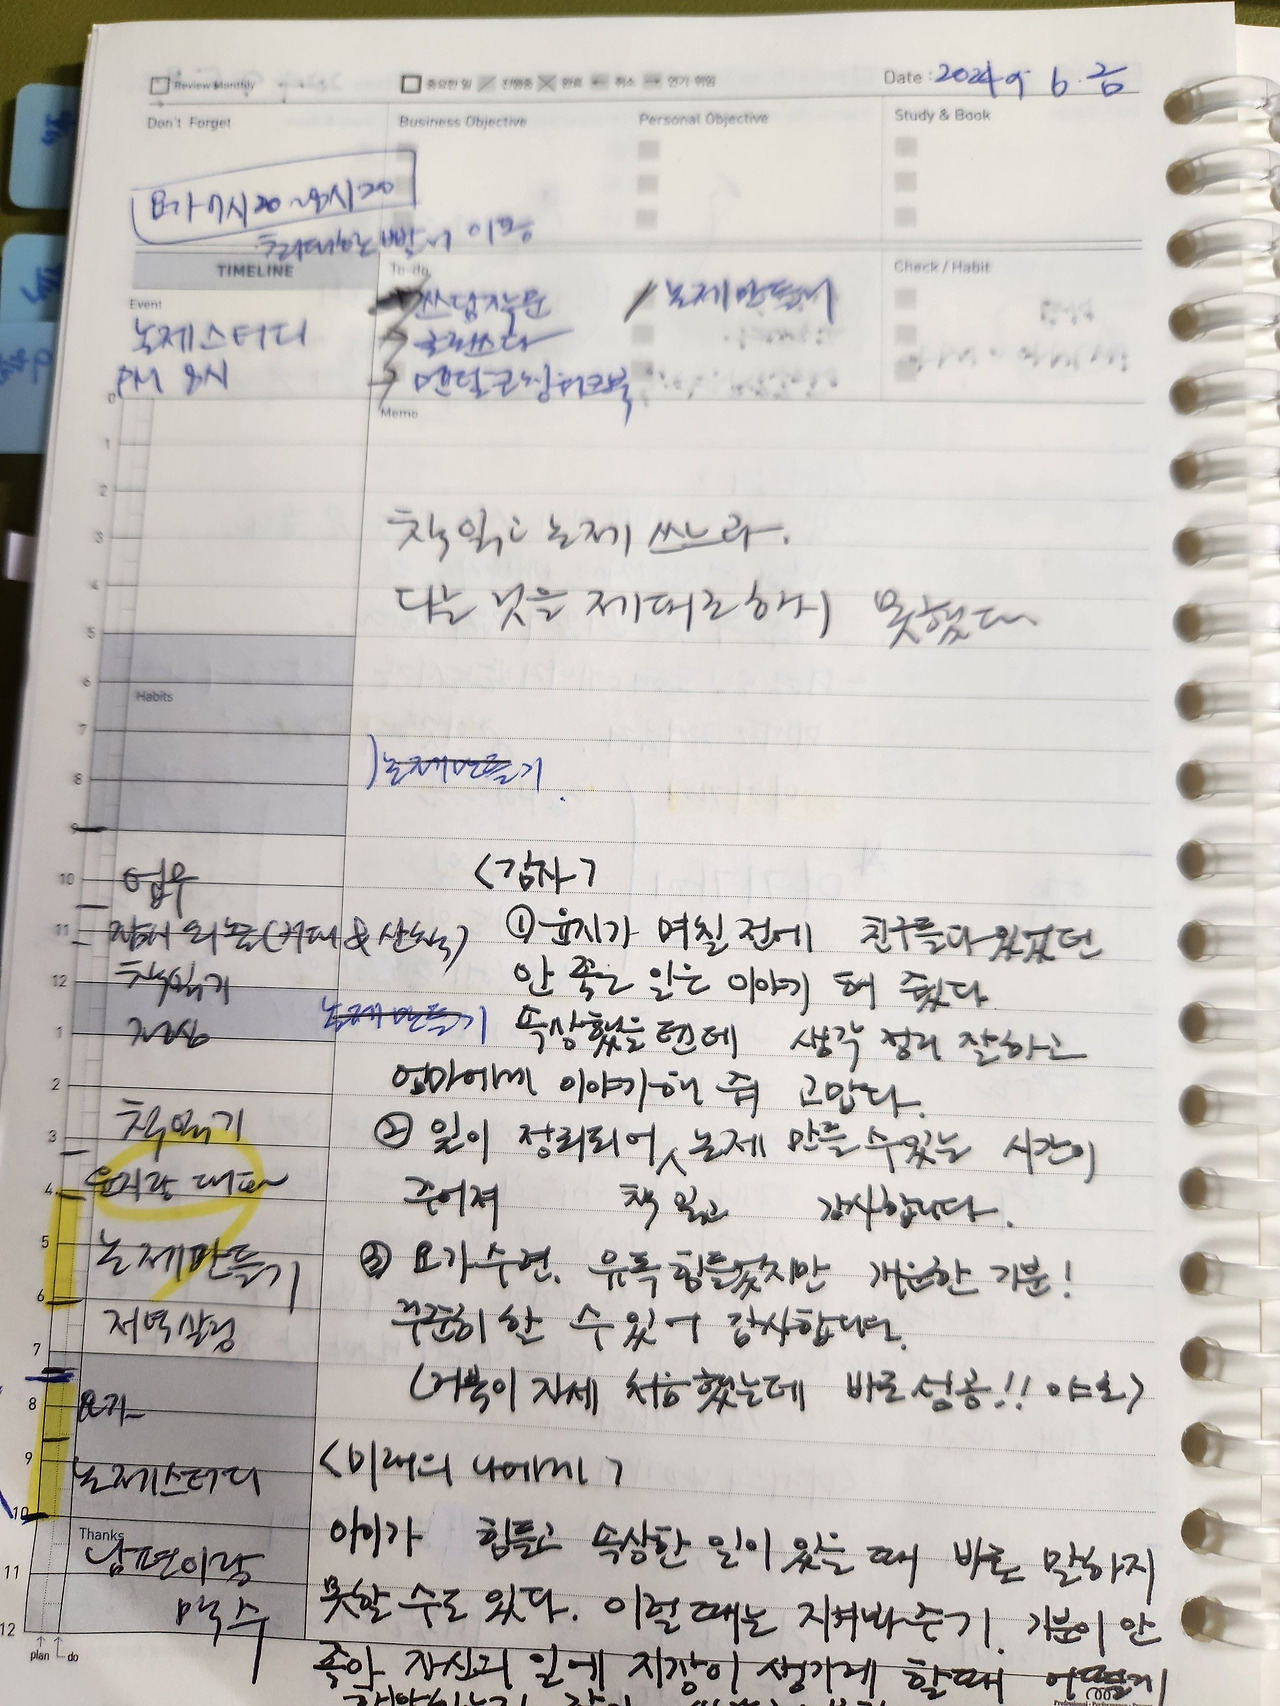 Review Monthly
중요한 일 진행중 완료 취소 연기 위임
Date : 2024 9 6. 금
Don't Forget
Business Objective
Personal Objective
Study & Book
요가 7시20~8시20
빨리 이동
TIMELINE
To-do
Check / Habit
Event
논제스터디
PM 8시
쓰담자문
논제만들기
멘탈코칭워크북
Memo
책 읽고 논제 쓰느라.
다른 것을 제대로 하지 못했다
Habits
논제만들기
업무
<감사>
① 윤지가 며칠 전에 친구를다 있었던
책읽기
안 좋은 일은 이야기 해 줬다
점심
논제만들기
속상했을 텐데 생각 정리 잘하고
엄마에게 이야기해 줘 고맙다.
책읽기
② 일이 정리되어, 논제 만들 수 있는 시간이
윤지랑 대화
주어져 책 읽고 감사합니다.
논제만들기
③ 요가수련. 유독 힘들었지만 개운한 기분!
저녁살림
꾸준히 할 수 있어 감사합니다.
(거북이 자세 처음 했는데 바로 성공!! 야호)
요가
논제스터디
<미래의 나에게>
Thanks
남편이랑
맥수
아이가 힘들고 속상한 일이 있을 때 바로 말하지
못할 수도 있다. 이럴 때는 지켜봐주기. 기분이 안
좋아 자신의 일에 지장이 생기려 할 때 어떻게
0
1
2
3
4
5
6
7
8
9
10
11
12
1
2
3
4
5
6
7
8
9
10
11
12
plan do